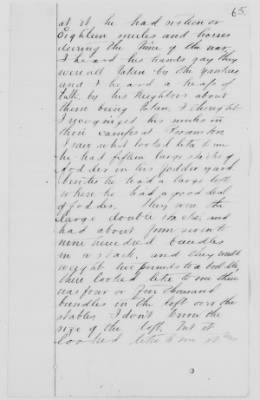 65.
at it, he had sixteen or
Eighteen mules and horses
during the time of the war
I heard his hands say they
were all taken by the yankees
and I heard a heap of
talk by his neighbors about
them being taken, I thought
I recognized his mules in
their camps at
I saw what looked like to me
he had fifteen large stacks of
fodder in his fodder yard
besides he had a large loft
where he had a good deal
of fodder. They were the
large double stacks, and
had about from seven to
nine hundred bundles
in a stack, and they would
weigh two pounds to a bundle,
there looked like to me there
was four or five thousand
bundles in the loft over the
stables I don't know the
size of the loft, but it
looked like to me